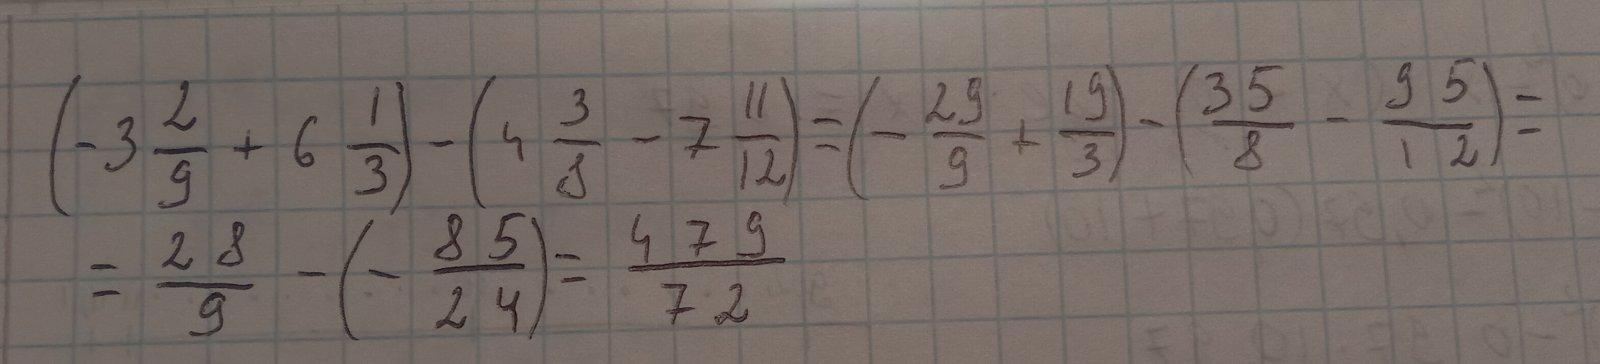 (-3 2/9 + 6 1/3) - (4 3/8 - 7 11/12) = (- 29/9 + 19/3) - (35/8 - 95/12) =
= 28/9 - (- 85/24) = 479/72